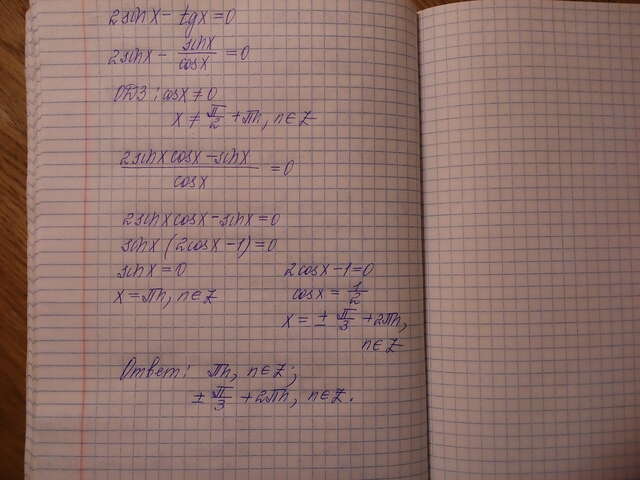 2sinx - tgx = 0
2sinx - sinx/cosx = 0
ОДЗ: cosx ≠ 0
x ≠ π/2 + πn, n∈Z
(2sinxcosx - sinx)/cosx = 0
2sinxcosx - sinx = 0
sinx (2cosx - 1) = 0
sinx = 0
x = πn, n∈Z
2cosx - 1 = 0
cosx = 1/2
x = ± π/3 + 2πn,
n∈Z
Ответ: πn, n∈Z;
± π/3 + 2πn, n∈Z.